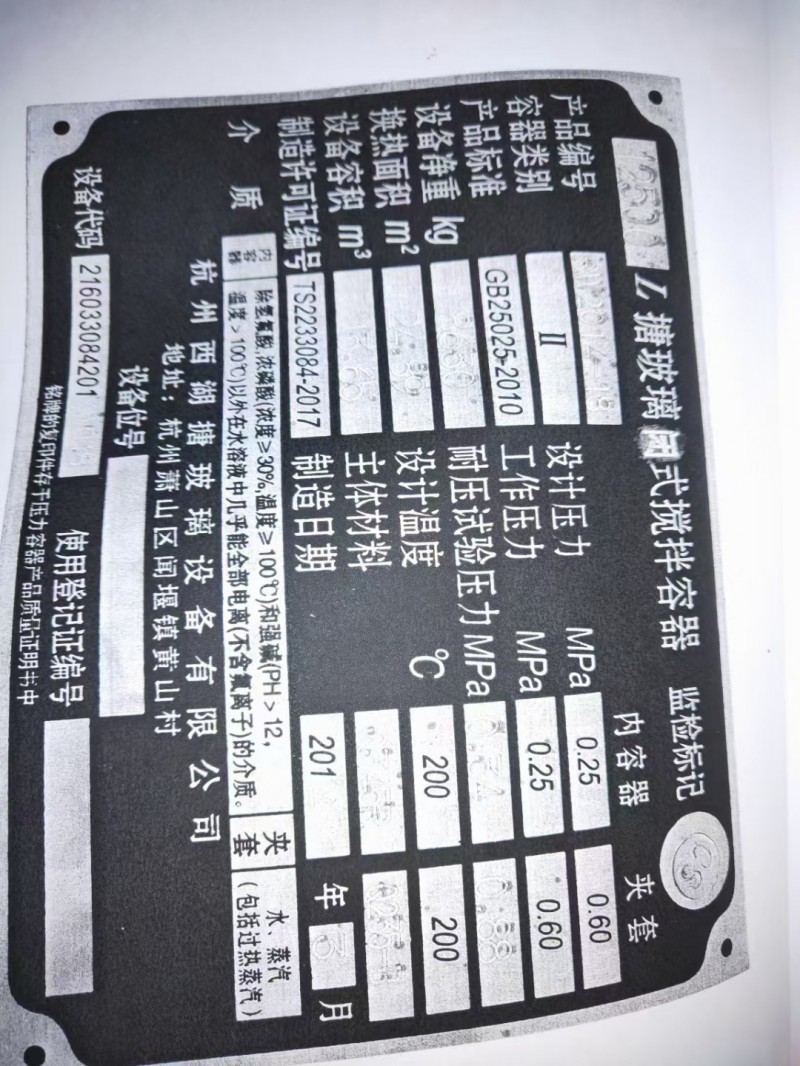 L 搪玻璃闭式搅拌容器 监检标记
内容器 夹套
产品编号 设计压力 MPa 0.25 0.60
容器类别 II 工作压力 MPa 0.25 0.60
产品标准 GB25025-2010 耐压试验压力 MPa
设备净重 kg 设计温度 ℃ 200 200
换热面积 m² 主体材料
设备容积 m³ 制造日期 201 年 月
制造许可证编号 TS2233084-2017
介质 内容器 除氢氟酸,浓磷酸(浓度≥30%,温度≥100℃)和强碱(PH>12,
温度>100℃)以外在水溶液中几乎能全部电离(不含氟离子)的介质。
夹套 水、蒸汽
(包括过热蒸汽)
杭州西湖搪玻璃设备有限公司
地址:杭州萧山区闻堰镇黄山村
设备位号
设备代码 216033084201 使用登记证编号
铭牌的复印件存于压力容器产品质量证明书中